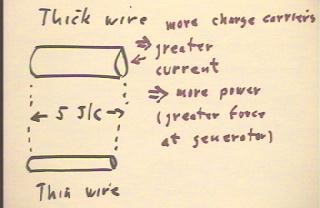 Thick wire
more charge carriers
⇒ greater
current
⇒ more power
(greater force
at generator)
← 5 J/C →
Thin wire